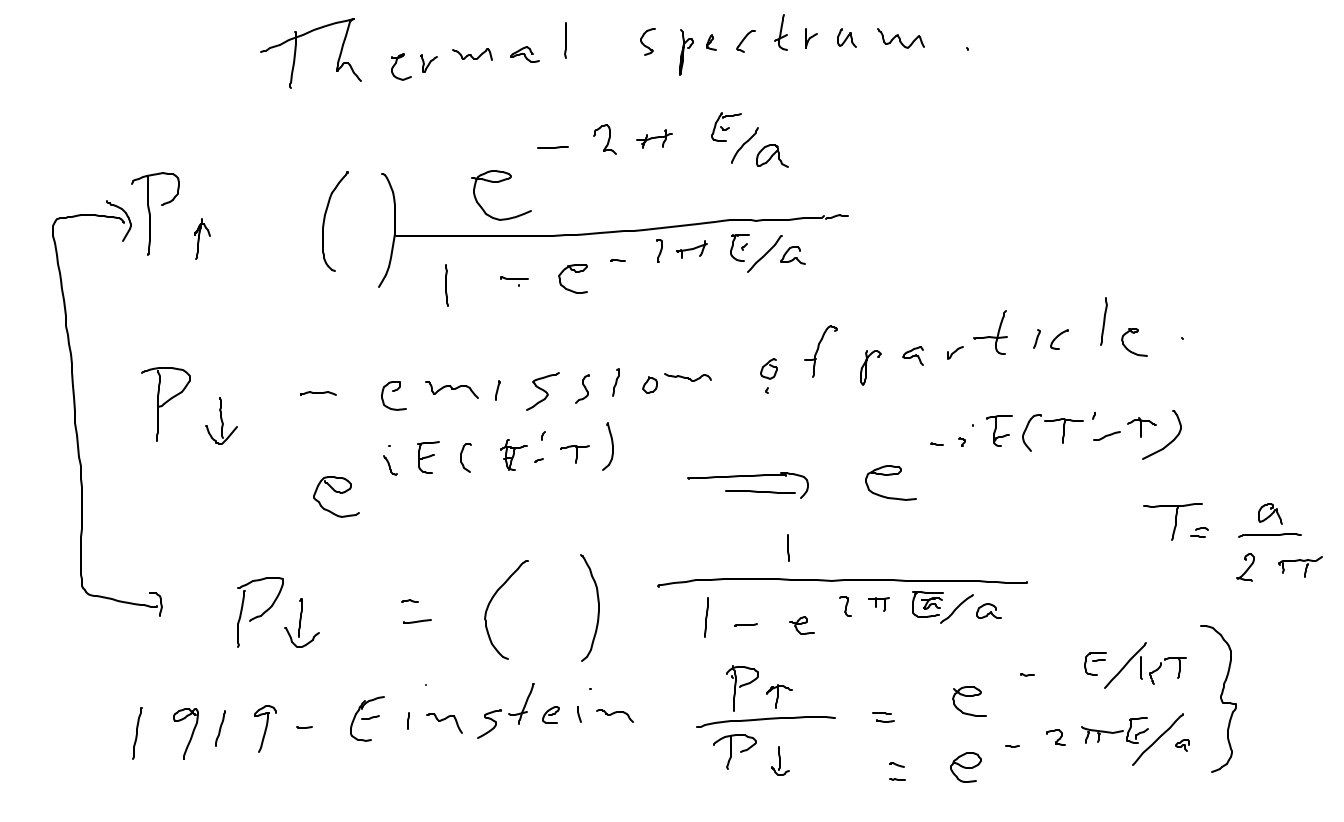 Thermal spectrum.
P↑ ( ) e^{-2π E/a} / (1 - e^{-2π E/a})
P↓ - emission of particle.
e^{iE(T'-T)} ⟹ e^{-iE(T'-T)}
T = a / 2π
P↓ = ( ) 1 / (1 - e^{2π E/a})
1919 - Einstein P↑ / P↓ = e^{-E/kT}
= e^{-2πE/a} }